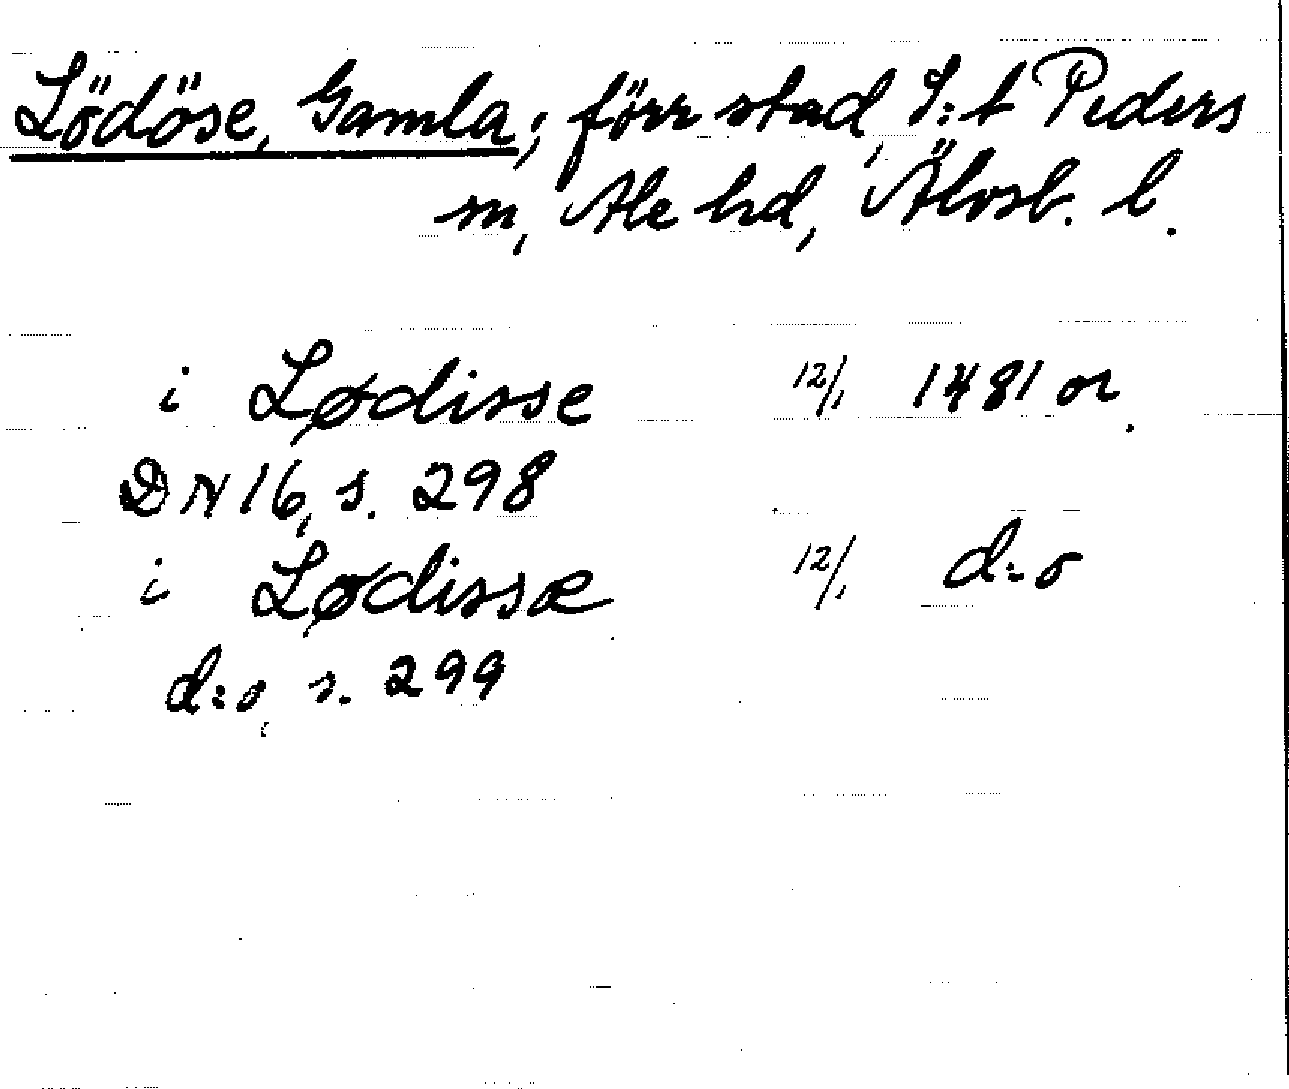 Lödöse, Gamla; förr stad, S:t Peders
sn, Ale hd, Älvsb. l.
i Lødisse 12/1 1481 or.
DN 16, s. 298
i Lødissæ 12/1 d:o
d:o, s. 299